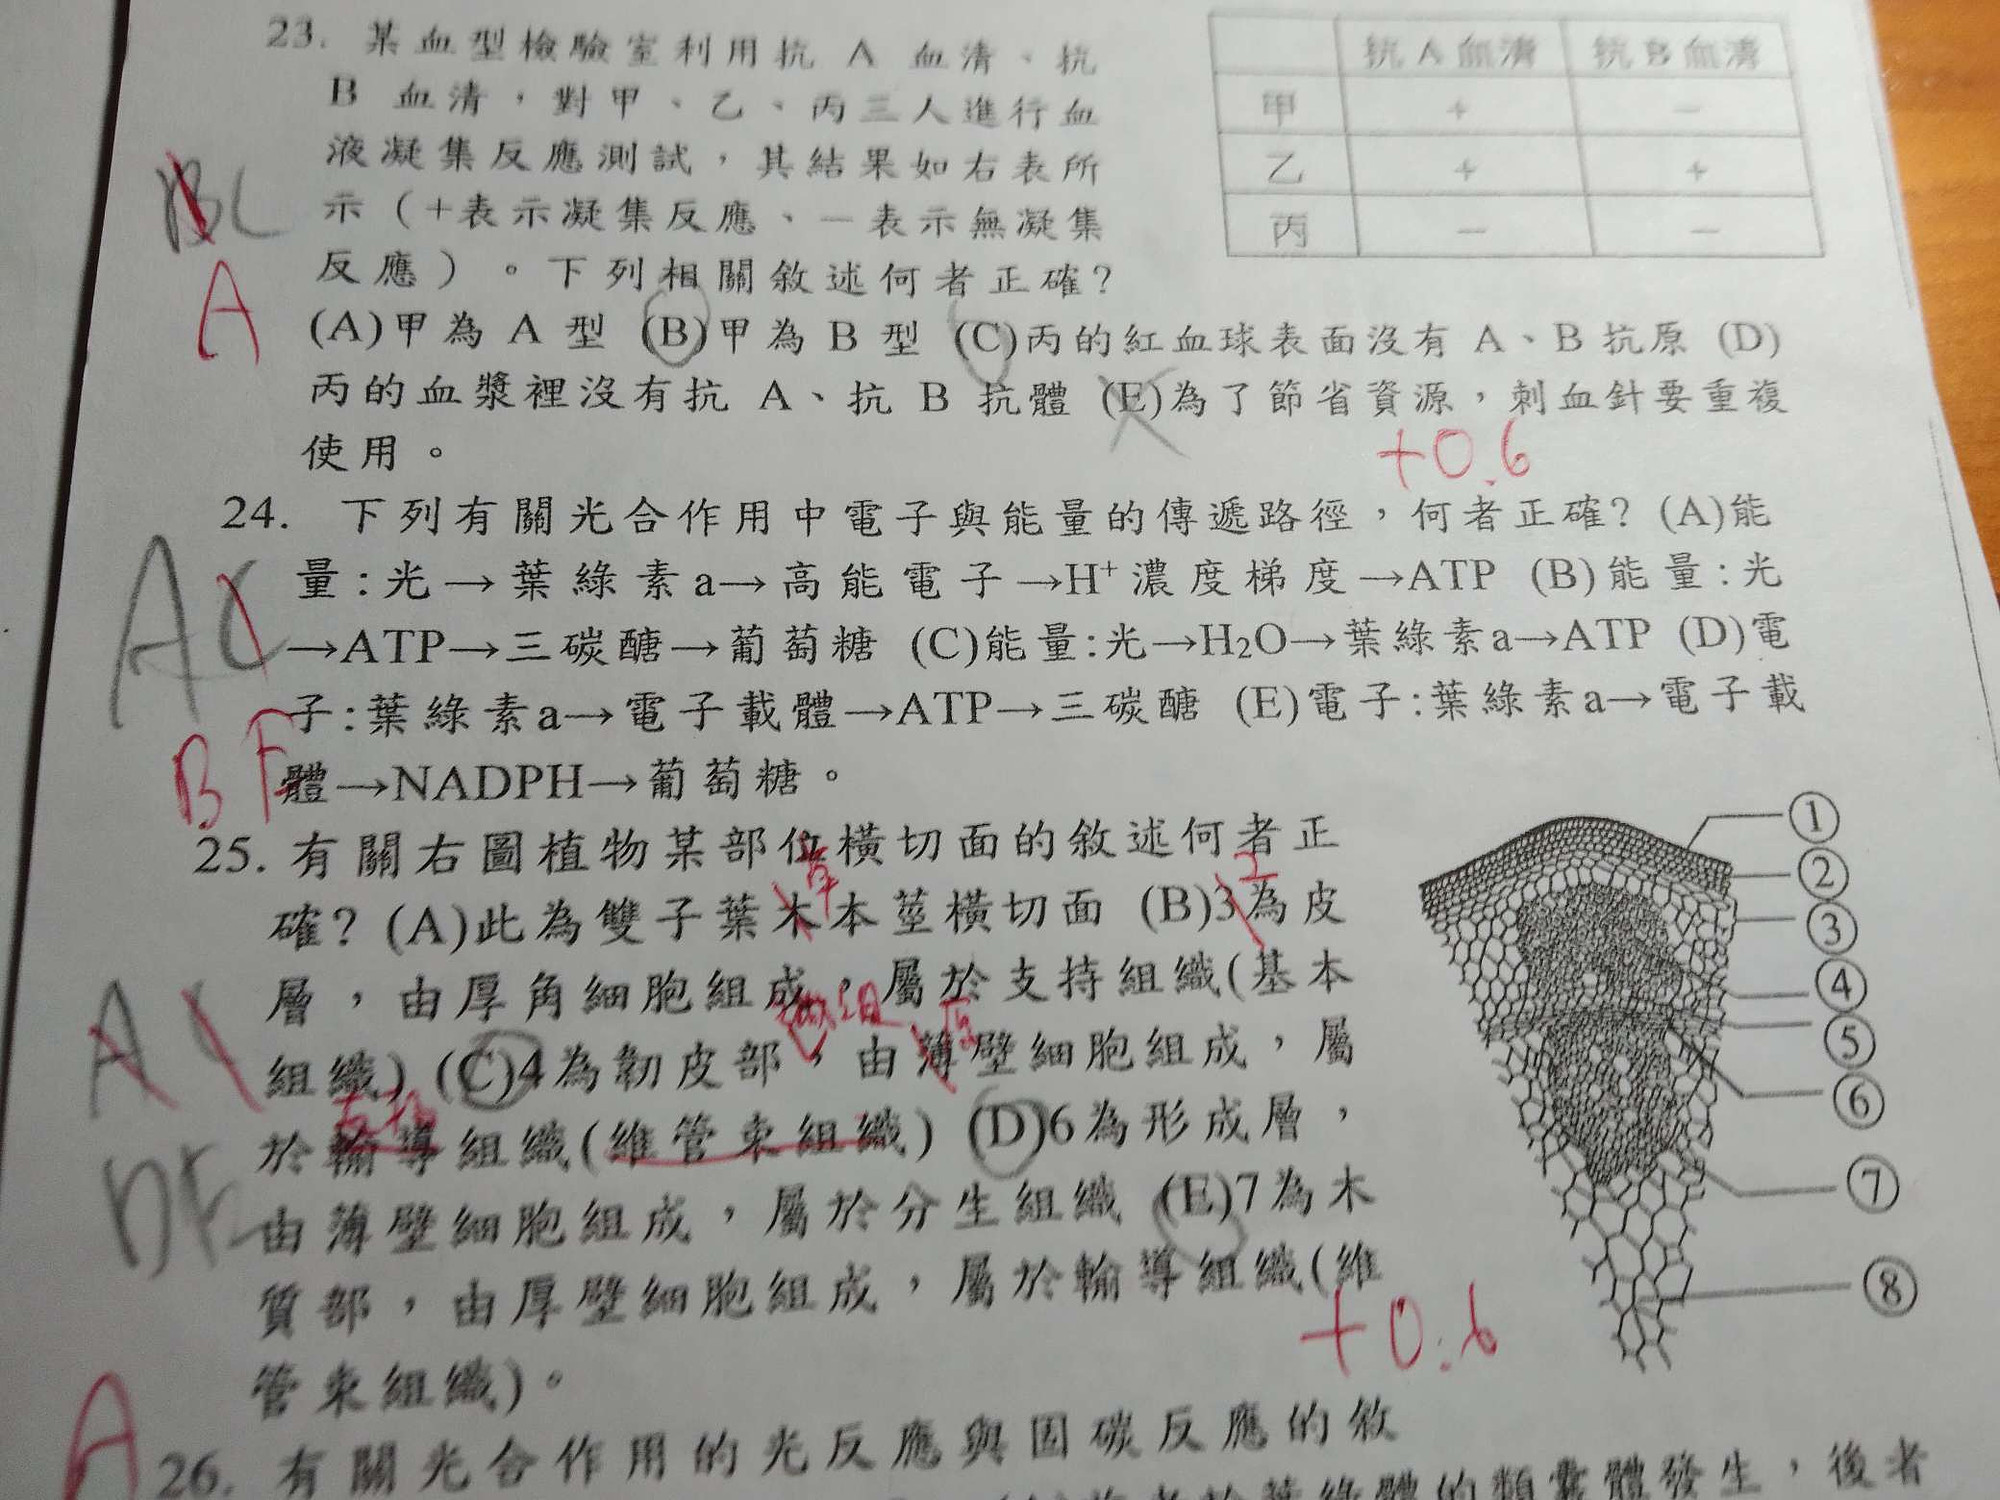 23. 某血型檢驗室利用抗 A 血清、抗
B 血清，對甲、乙、丙三人進行血
液凝集反應測試，其結果如右表所
示（+表示凝集反應、－表示無凝集
反應）。下列相關敘述何者正確?
抗 A 血清 抗 B 血清
甲 + －
乙 + +
丙 － －
BC
A
(A)甲為 A 型 (B)甲為 B 型 (C)丙的紅血球表面沒有 A、B 抗原 (D)
丙的血漿裡沒有抗 A、抗 B 抗體 (E)為了節省資源，刺血針要重複
使用。
+0.6
24. 下列有關光合作用中電子與能量的傳遞路徑，何者正確? (A)能
量:光→葉綠素a→高能電子→H⁺濃度梯度→ATP (B)能量:光
→ATP→三碳醣→葡萄糖 (C)能量:光→H₂O→葉綠素a→ATP (D)電
子:葉綠素a→電子載體→ATP→三碳醣 (E)電子:葉綠素a→電子載
體→NADPH→葡萄糖。
AC
B E
25. 有關右圖植物某部位橫切面的敘述何者正
確? (A)此為雙子葉木本莖橫切面 (B)3為皮
層，由厚角細胞組成，屬於支持組織(基本
組織) (C)4為韌皮部，由薄壁細胞組成，屬
於輸導組織(維管束組織) (D)6為形成層，
由薄壁細胞組成，屬於分生組織 (E)7為木
質部，由厚壁細胞組成，屬於輸導組織(維
管束組織)。
草
2
厚
A C
DE
+0.6
①
②
③
④
⑤
⑥
⑦
⑧
A
26. 有關光合作用的光反應與固碳反應的敘
於葉綠體的類囊體發生，後者